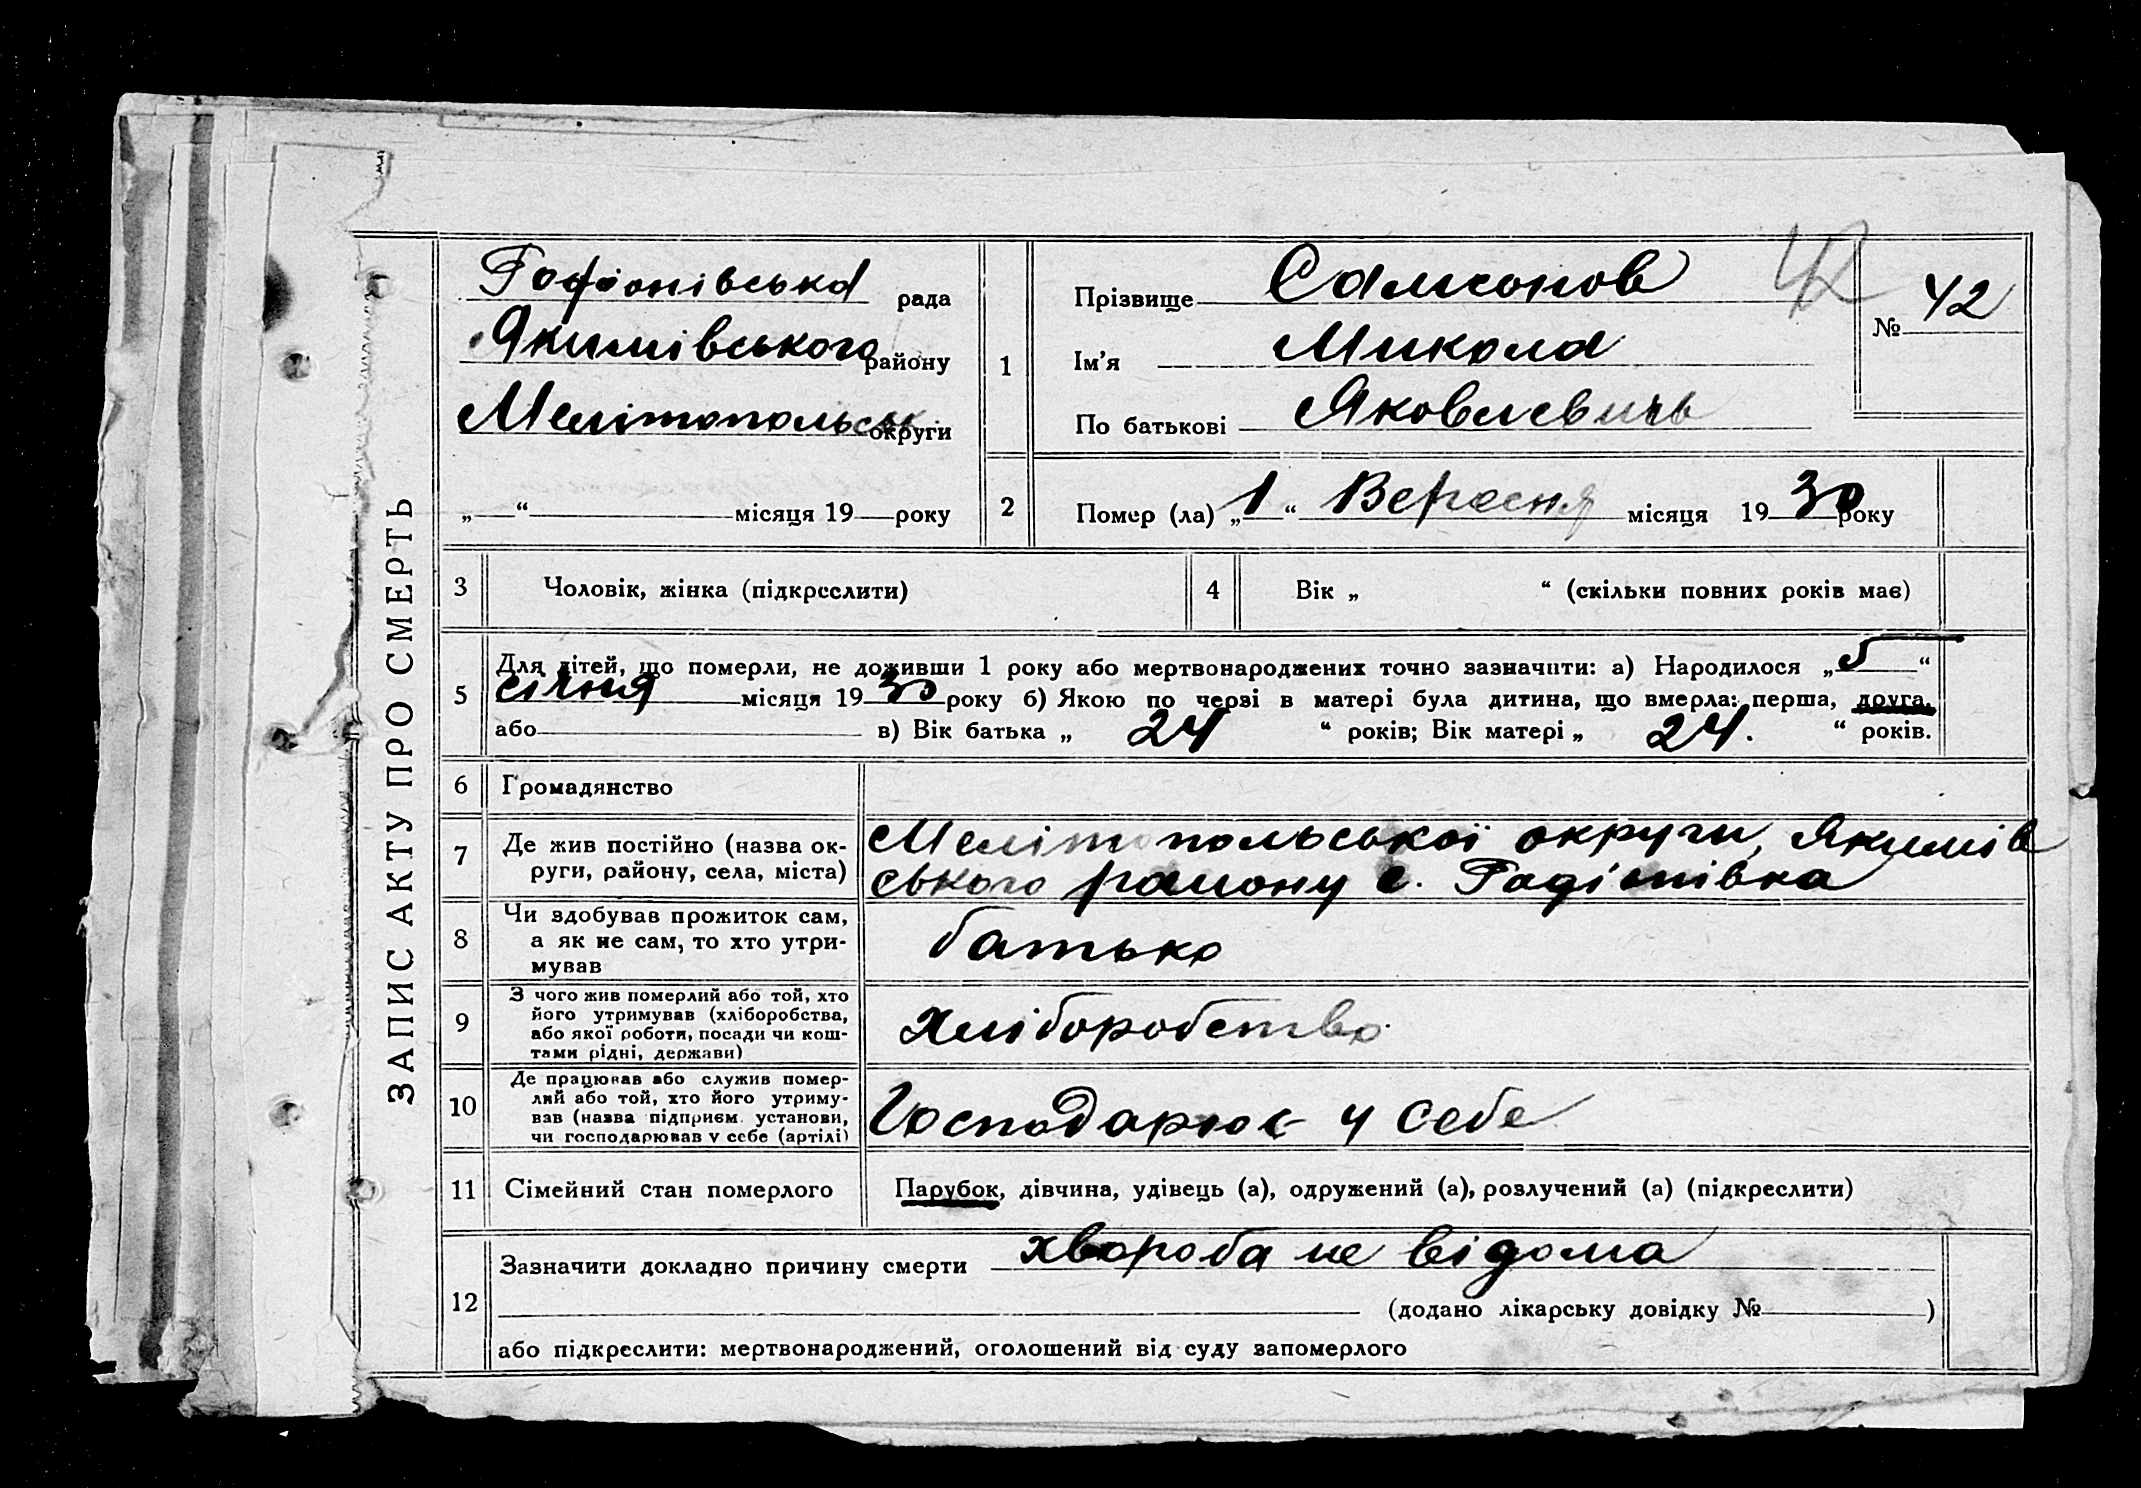 ЗАПИС АКТУ ПРО СМЕРТЬ
Радіонівська рада
Якимівського району
Мелітопольськ округи
„ “ місяця 19 року
1
Прізвище Самсонов
Ім’я Микола
По батькові Яковлевичь
42
№ 42
2
Помер (ла) „1“ Вересня місяця 1930 року
3 Чоловік, жінка (підкреслити)
4 Вік „ “ (скільки повних років має)
5 Для дітей, що померли, не доживши 1 року або мертвонароджених точно зазначити: а) Народилося „5“
січня місяця 1930 року б) Якою по черзі в матері була дитина, що вмерла: перша, друга,
або в) Вік батька „ 24 “ років; Вік матері „ 24. “ років.
6 Громадянство
7 Де жив постійно (назва ок-
руги, району, села, міста)
Мелітопольської округи, Якимів
ського району с. Радіонівка
8 Чи здобував прожиток сам,
а як не сам, то хто утри-
мував
батько
9 З чого жив померлий або той, хто
його утримував (хліборобства,
або якої роботи, посади чи кош-
тами рідні, держави)
хліборобство
10 Де працював або служив помер-
лий або той, хто його утриму-
вав (назва підприєм. установи,
чи господарював у себе (артілі)
Господарює у себе
11 Сімейний стан померлого Парубок, дівчина, удівець (а), одружений (а), розлучений (а) (підкреслити)
12 Зазначити докладно причину смерти хвороба не відома
(додано лікарську довідку № )
або підкреслити: мертвонароджений, оголошений від суду запомерлого